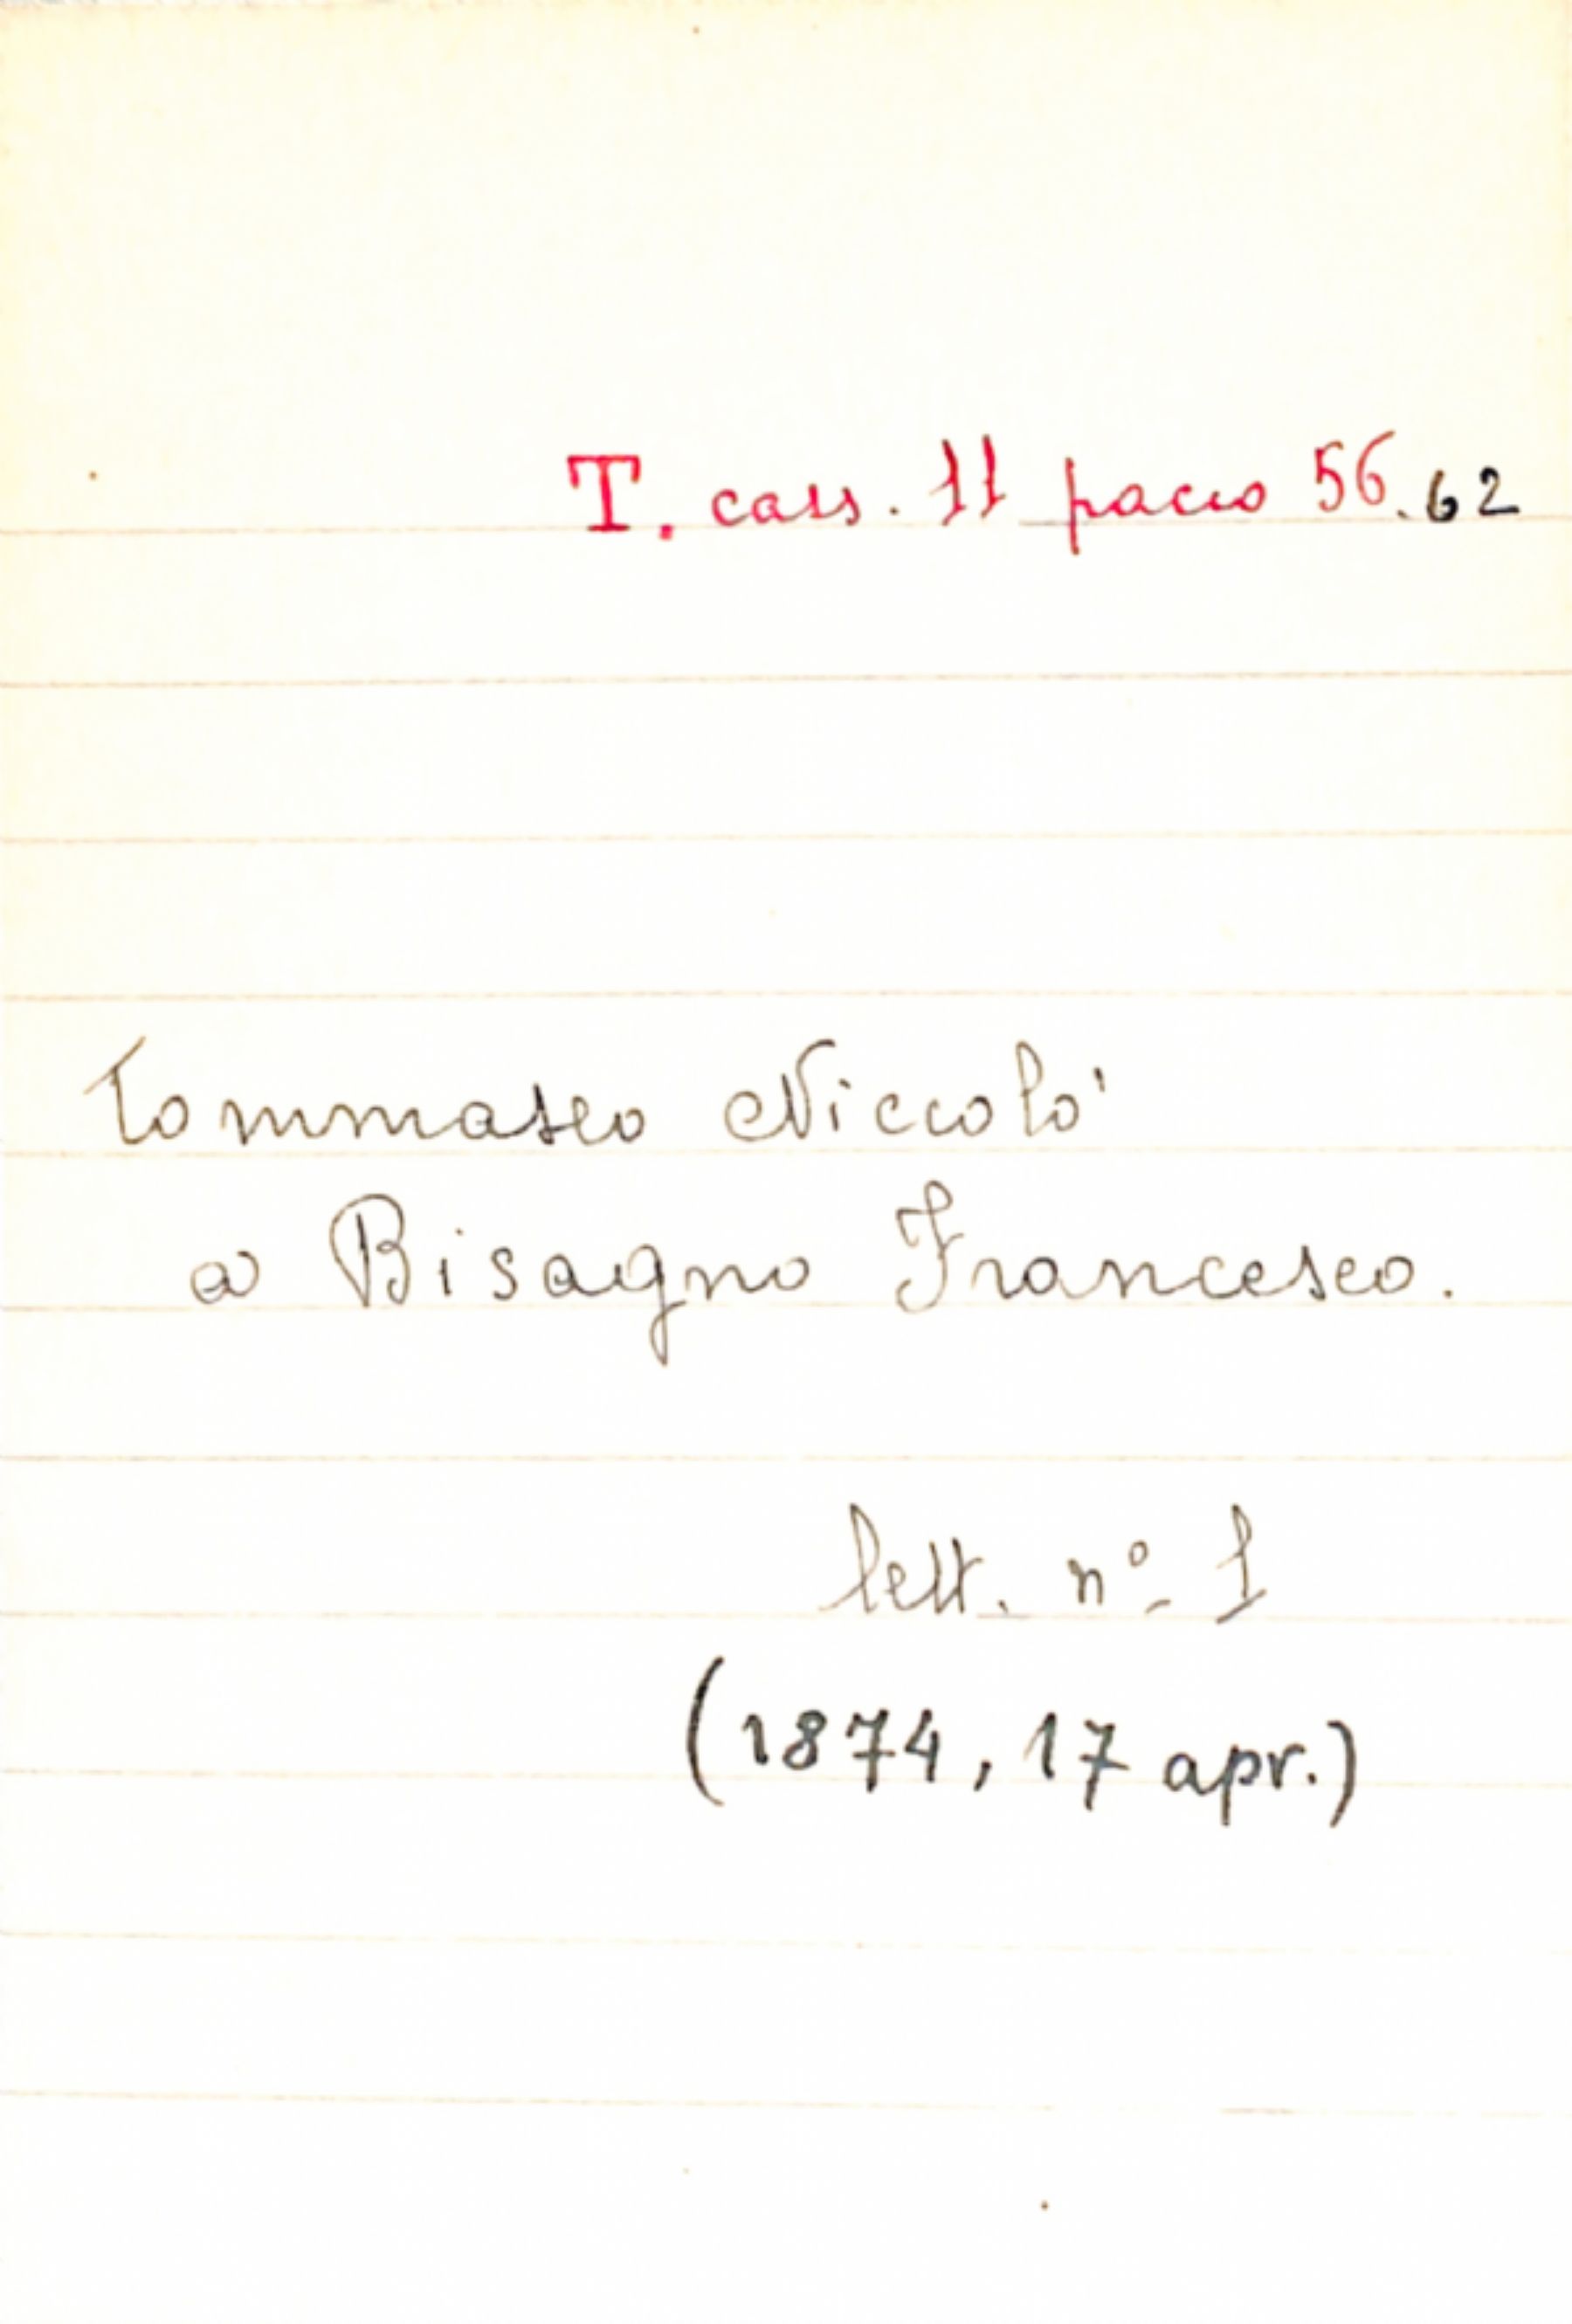 T. cass. 11 pacco 56.62
Tommaseo Niccolo'
a Bisagno Francesco.
lett. nº 1
(1874, 17 apr.)